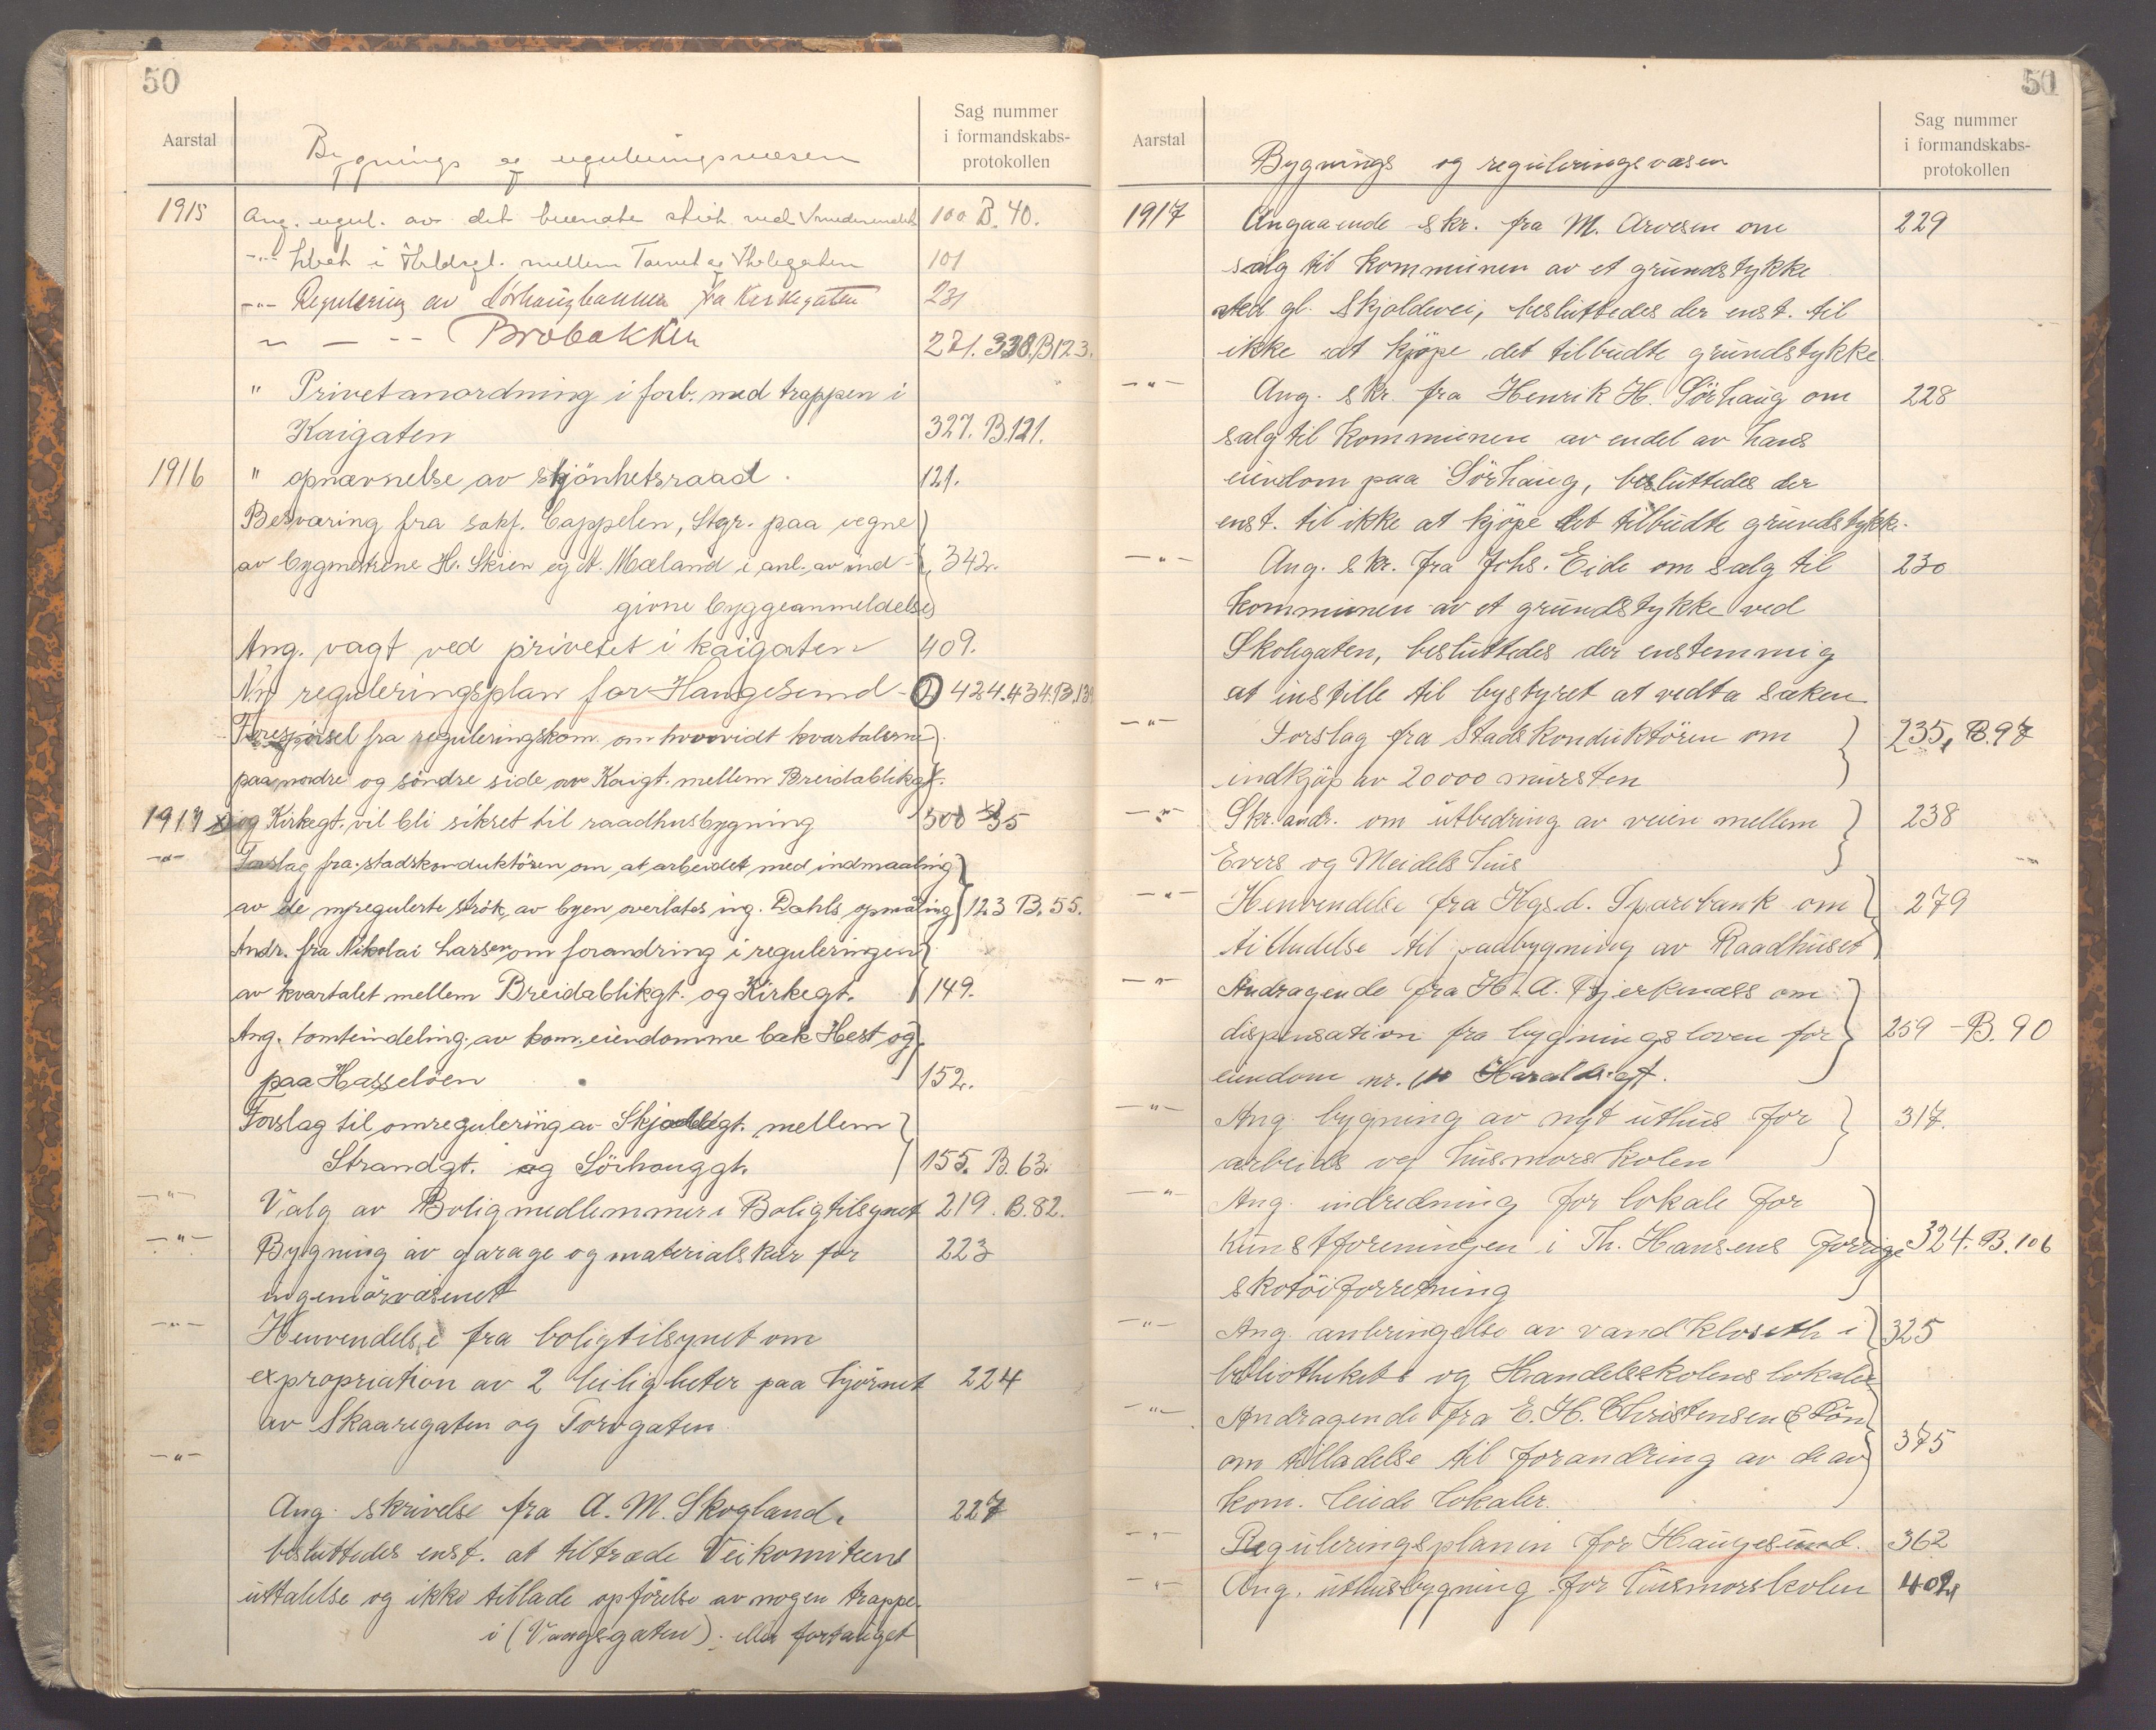 50
Aarstal
Bygnings og reguleringsvæsen
Sag nummer
i formandskabs-
protokollen
1915 Ang. regul. av det brændte strøk ved 100 B. 40.
-"- i mellem Torvet og Skolegaten 101
-"- Regulering av Sörhaugbakken fra Kirkegaten 231
" — -- Brobakken 271. 338. B 123.
" Privetanordning i forb. med trappen i
Kaigaten 327. B. 121.
1916 " opnævnelse av skjönhetsraad. 121.
Besværing fra sakf. Cappelen, Stgr. paa vegne
av bygmestrene H. Skien og A. Mæland i anl. av ind- 342.
givne byggeanmeldelser
Ang. vagt ved privetet i kaigaten 409.
Ny reguleringsplan for Haugesund - 424.434.B.139
Forespörsel fra reguleringskom. om hvorvidt kvartalerne
paa nordre og söndre side av Kaigt. mellem Breidablikgt.
1917 og Kirkegt. vil bli sikret til raadhusbygning 300 35
-"- Forslag fra stadskonduktören om at arbeidet med indmaaling
av de nyregulerte strök av byen overlates ing. Dahls opmåling 123 B. 55.
Andr. fra Nikolai Larsen om forandring i reguleringen
av kvartalet mellem Breidablikgt. og Kirkegt. 149.
Ang. tomteindeling av kom. eiendomme bak Hest og
paa Hasselöen 152.
Forslag til omregulering av Skjoldegt. mellem
Strandgt. og Sörhauggt. 155. B. 63.
-"- Valg av Boligmedlemmer i Boligtilsynet 219. B. 82.
-"- Bygning av garage og materialskur for 223
ingeniörvæsenet
-"- Henvendelse fra boligtilsynet om
expropriation av 2 leiligheter paa hjörnet 224
av Skaaregaten og Torvgaten.
-"-
Ang. skrivelse fra A. M. Skogland. 227
besluttedes enst. at tiltræde Veikomiteens
uttalelse og ikke tillade opförelse av nogen trappe
i (Vangsgaten). eller fortauget
51
Aarstal
Bygnings og reguleringsvæsen
Sag nummer
i formandskabs-
protokollen
1917 Angaaende skr. fra M. Arvesen om 229
salg til kommunen av et grundstykke
ved gl. Skjoldevei, besluttedes der enst. til
ikke at kjöpe det tilbudte grundstykke
-"- Ang. skr. fra Henrik H. Sörhaug om 228
salg til kommunen av endel av hans
eiendom paa Sörhaug, besluttedes der
enst. til ikke at kjöpe det tilbudte grundstykke.
-"- Ang. skr. fra Johs. Eide om salg til 230
kommunen av et grundstykke ved
Skolegaten, besluttedes der enstemmig
at instille til bystyret at vedta saken
-"- Forslag fra Stadskonduktören om 235, B. 97
indkjöp av 20000 mursten
-"- Skr. andr. om utbedring av veien mellem 238
Evers og Meidels hus
-"- Henvendelse fra Hgsd. Sparebank om 279
tilladelse til paabygning av Raadhuset
-"- Andragende fra H. A. Bjerknæss om
dispensation fra bygningsloven for 259 - B. 90
eiendom nr. Haraldsgt.
-"- Ang. bygning av nyt uthus for 317.
arbeids og husmorskolen
-"- Ang. indredning for lokale for
kunstforeningen i Th. Hansens forrige 324. B. 106
skotöiforretning
-"- Ang. anbringelse av vandkloseth i 325
bibliothekets og Handelsskolens lokaler
-"- Andragende fra E. H. Christensen & Sön
om tilladelse til forandring av de av 375
kom. leiede lokaler.
-"- Reguleringsplanen for Haugesund. 362
-"- Ang. uthusbygning for husmorskolen 402